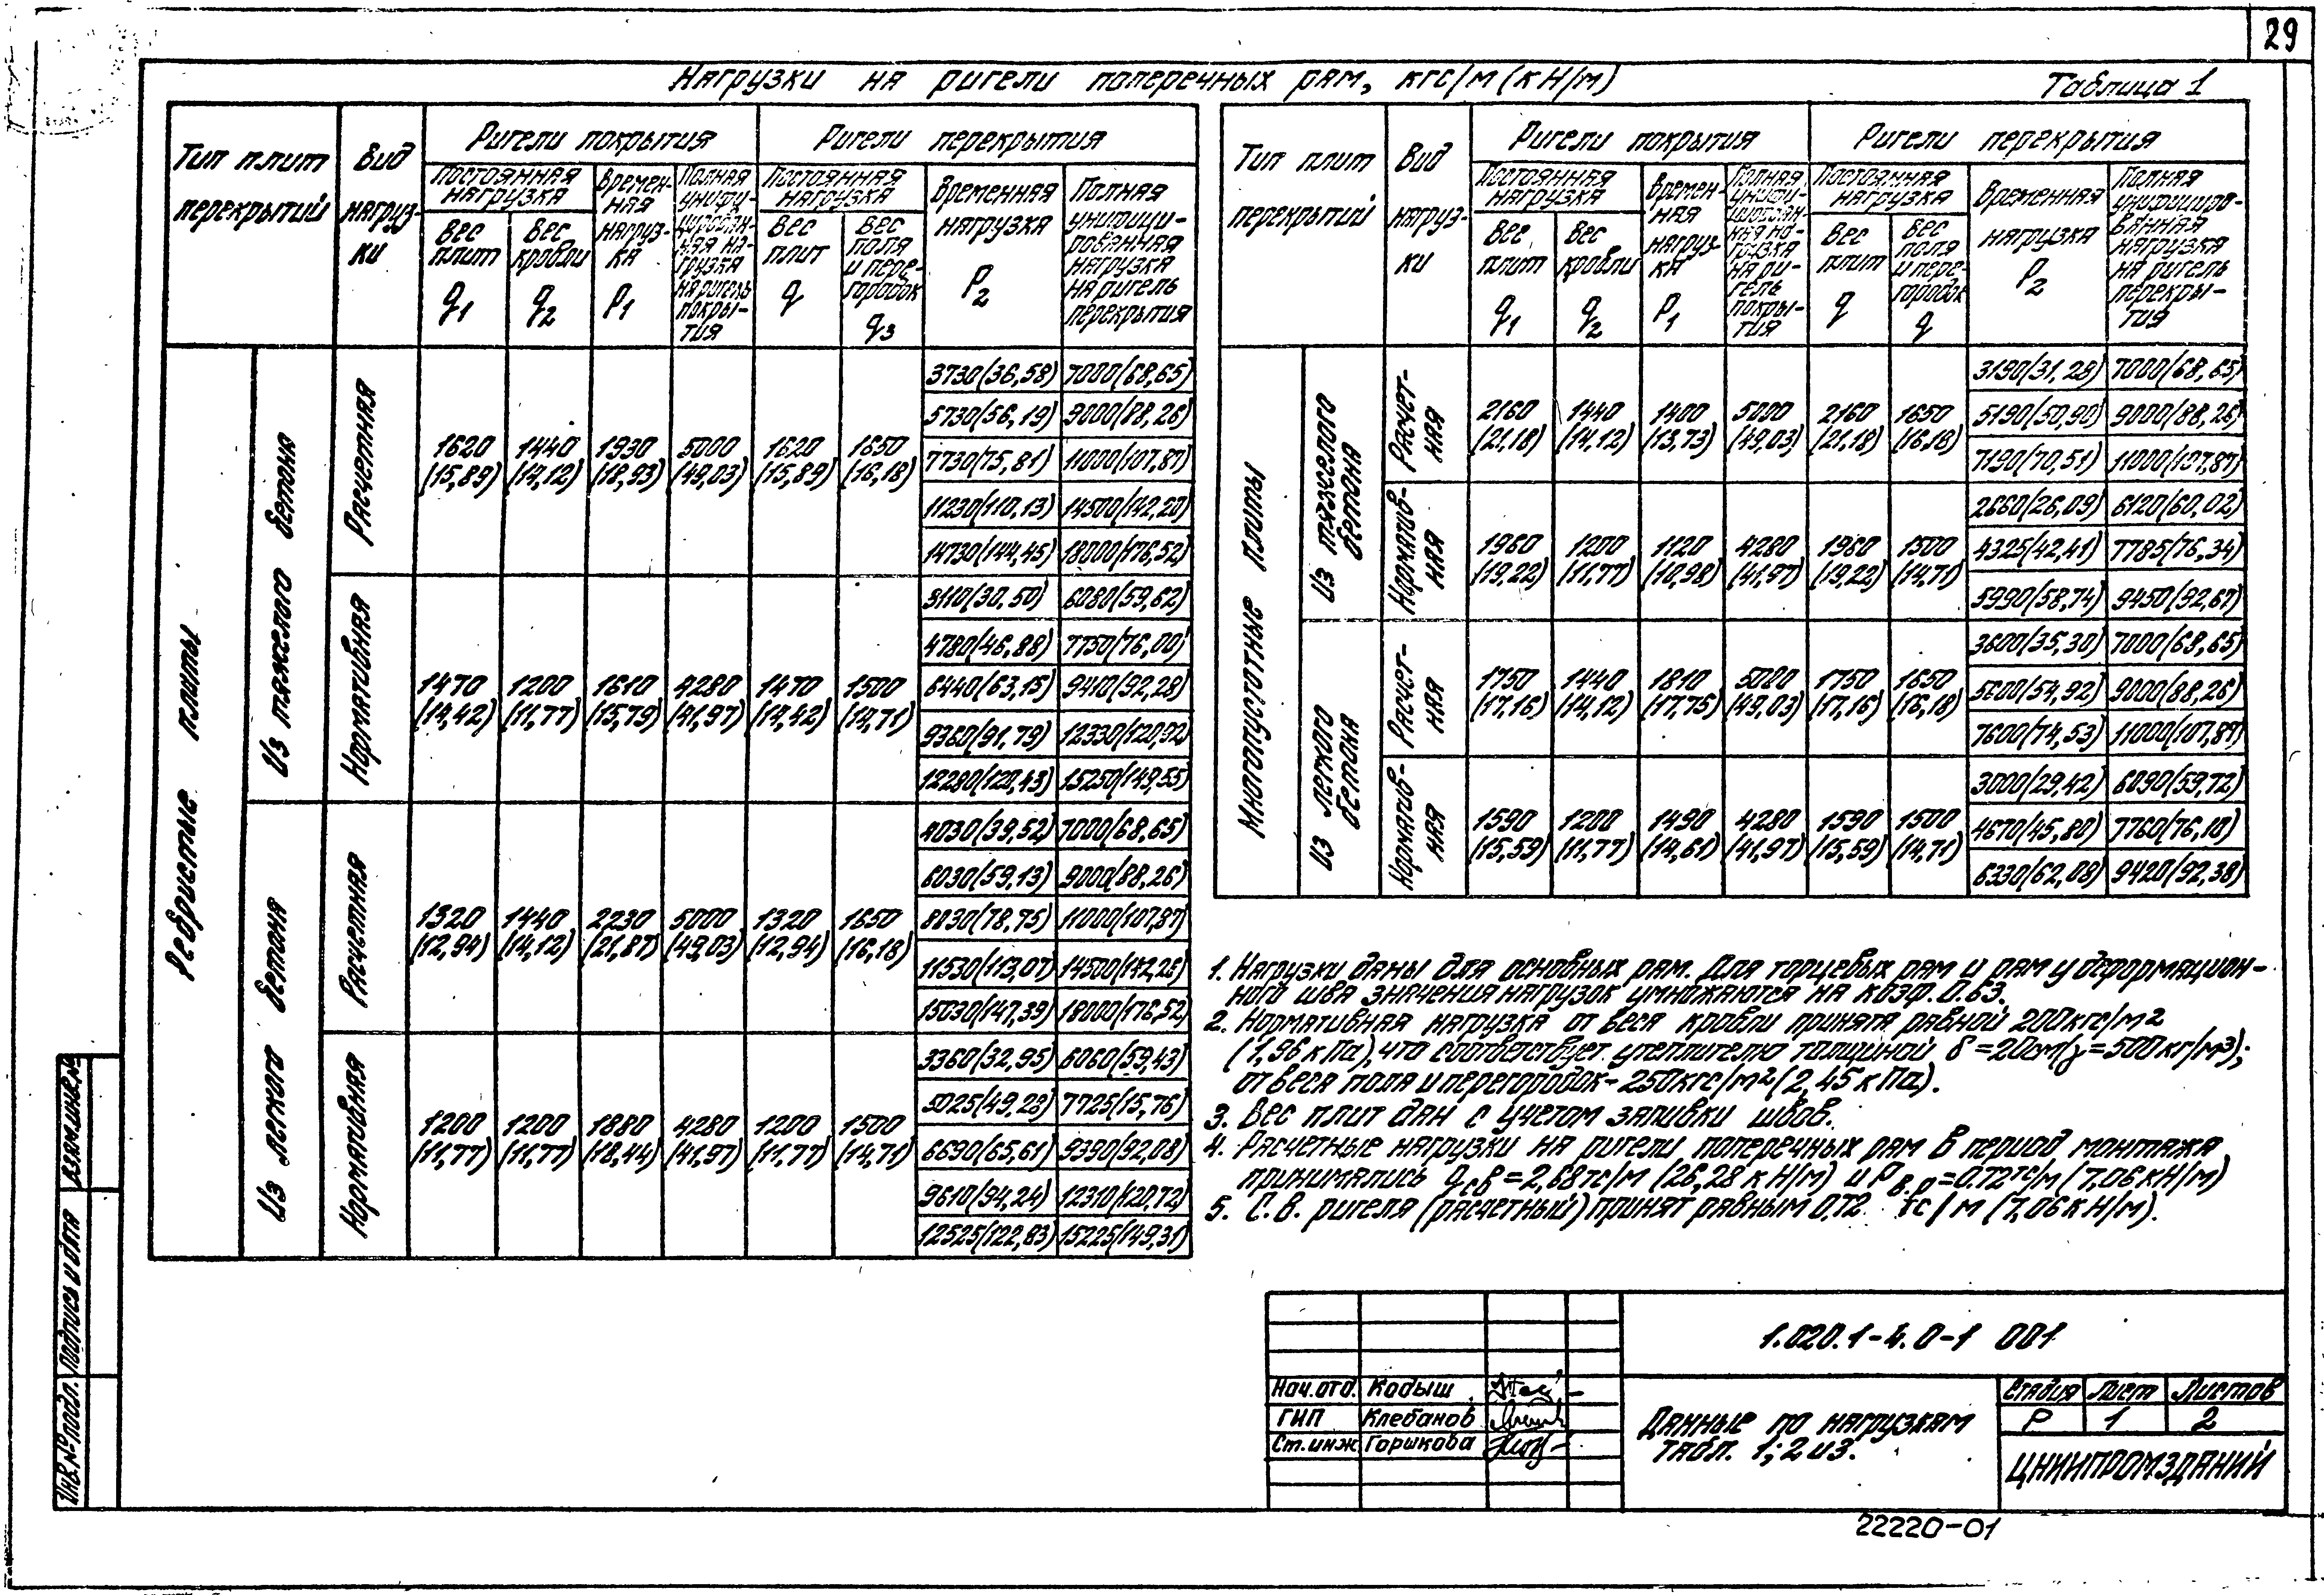 29
Нагрузки на ригели поперечных рам, кгс/м (кН/м)
Таблица 1
Тип плит перекрытий
Вид нагруз-
ки
Ригели покрытия
Ригели перекрытия
Постоянная нагрузка
Времен-
ная
нагруз-
ка
P1
Полная
унифи-
цирован-
ная на-
грузка
на ригель
покры-
тия
Постоянная нагрузка
Временная
нагрузка
P2
Полная
унифици-
рованная
нагрузка
на ригель
перекрытия
Вес плит q1
Вес кровли q2
Вес плит q
Вес
пола
и пере-
городок
q3
Ребристые плиты
Из тяжелого бетона
Расчетная
1620 1440 1930 5000 1620 1650
(15,89) (14,12) (18,93) (49,03) (15,89) (16,18)
3730(36,58) 7000(68,65)
5730(56,19) 9000(88,26)
7730(75,81) 11000(107,87)
11230(110,13) 14500(142,20)
14730(144,45) 18000(176,52)
Нормативная
1470 1200 1610 4280 1470 1500
(14,42) (11,77) (15,79) (41,97) (14,42) (14,71)
3110(30,50) 6080(59,62)
4780(46,88) 7750(76,00)
6440(63,15) 9410(92,28)
9360(91,79) 12330(120,92)
12280(120,43) 15250(149,55)
Из легкого бетона
Расчетная
1320 1440 2230 5000 1320 1650
(12,94) (14,12) (21,87) (49,03) (12,94) (16,18)
4030(39,52) 7000(68,65)
6030(59,13) 9000(88,26)
8030(78,75) 11000(107,87)
11530(113,07) 14500(142,20)
15030(147,39) 18000(176,52)
Нормативная
1200 1200 1880 4280 1200 1500
(11,77) (11,77) (18,44) (41,97) (11,77) (14,71)
3360(32,95) 6060(59,43)
5025(49,28) 7725(15,76)
6690(65,61) 9390(92,08)
9610(94,24) 12310(120,72)
12525(122,83) 15225(149,31)
Тип плит перекрытий
Вид нагруз-
ки
Ригели покрытия
Ригели перекрытия
Постоянная нагрузка
Времен-
ная
нагруз-
ка
P1
Полная
унифи-
цирован-
ная на-
грузка
на ри-
гель
покры-
тия
Постоянная нагрузка
Временная
нагрузка
P2
Полная
унифициро-
ванная
нагрузка
на ригель
перекры-
тия
Вес плит q1
Вес кровли q2
Вес плит q
Вес
пола
и пере-
городок
q
Многопустотные плиты
Из тяжелого бетона
Расчет-
ная
2160 1440 1400 5000 2160 1650
(21,18) (14,12) (13,73) (49,03) (21,18) (16,18)
3190(31,28) 7000(68,65)
5190(50,90) 9000(88,26)
7190(70,51) 11000(107,87)
Норматив-
ная
1960 1200 1120 4280 1960 1500
(19,22) (11,77) (10,98) (41,97) (19,22) (14,71)
2660(26,09) 6120(60,02)
4325(42,41) 7785(76,34)
5990(58,74) 9450(92,67)
Из легкого бетона
Расчет-
ная
1750 1440 1810 5000 1750 1650
(17,16) (14,12) (17,75) (49,03) (17,16) (16,18)
3600(35,30) 7000(68,65)
5600(54,92) 9000(88,26)
7600(74,53) 11000(107,87)
Норматив-
ная
1590 1200 1490 4280 1590 1500
(15,59) (11,77) (14,61) (41,97) (15,59) (14,71)
3000(29,42) 6090(59,72)
4670(45,80) 7760(76,10)
6330(62,08) 9420(92,38)
1. Нагрузки даны для основных рам. Для торцевых рам и рам у деформацион-
ного шва значения нагрузок умножаются на коэф. 0.63.
2. Нормативная нагрузка от веса кровли принята равной 200кгс/м2
(1,96 кПа), что соответствует утеплителю толщиной δ=20см(γ=500кг/м3);
от веса пола и перегородок-250кгс/м2(2,45 кПа).
3. Вес плит дан с учетом заливки швов.
4. Расчетные нагрузки на ригели поперечных рам в период монтажа
принимались qсв=2,68тс/м (26,28 кН/м) и Рв.р=0.72тс/м (7,06кН/м)
5. С.В. ригеля (расчетный) принят равным 0,72 тс/м (7,06кН/м).
Взам.инв.№
Подпись и дата
Инв.№подл.
1.020.1-4.0-1 001
Нач.отд. Кодыш
ГИП Клебанов
Ст.инж Горшкова
Данные по нагрузкам
табл. 1; 2 и 3.
Стадия Лист Листов
Р 1 2
ЦНИИПРОМЗДАНИЙ
22220-01